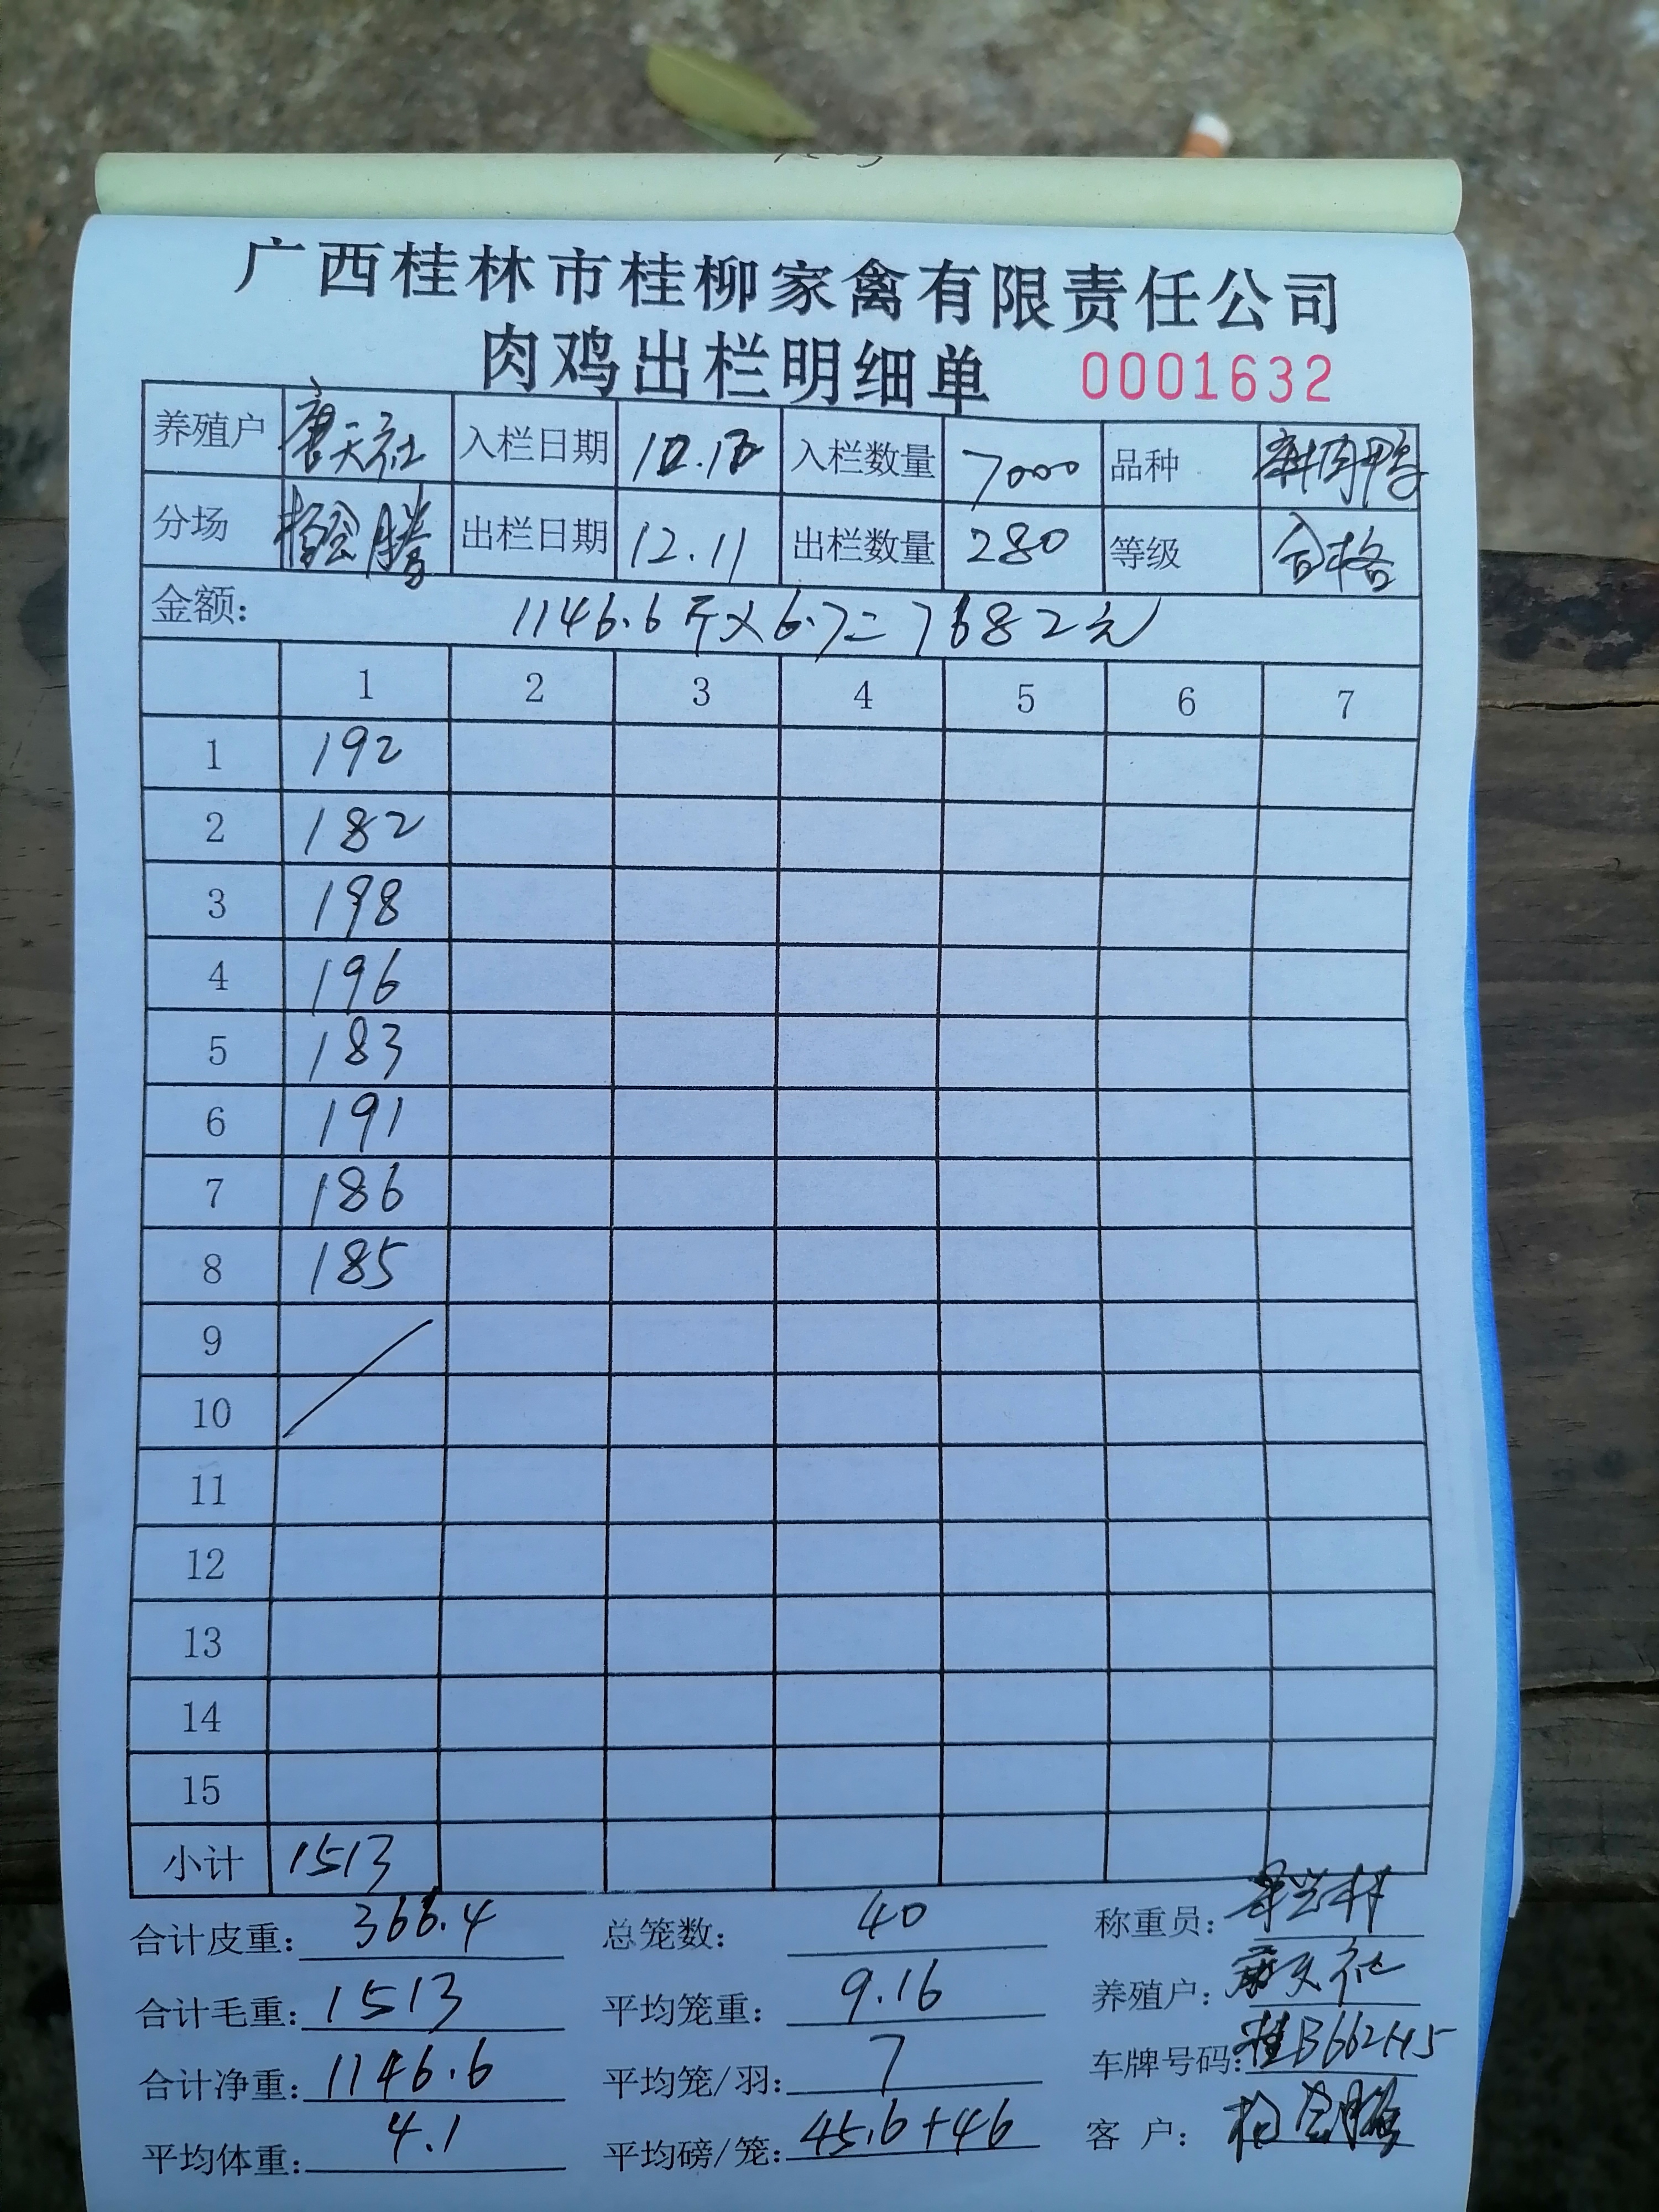 广西桂林市桂柳家禽有限责任公司
肉鸡出栏明细单 0001632
养殖户 唐天社 入栏日期 入栏数量 7000 品种
分场 出栏日期 12.11 出栏数量 280 等级 合格
金额: 1146.6斤×6.7=7682元
1 2 3 4 5 6 7
1 192
2 182
3 198
4 196
5 183
6 191
7 186
8 185
9
10
11
12
13
14
15
小计 1513
合计皮重: 366.4 总笼数: 40 称重员:
合计毛重: 1513 平均笼重: 9.16 养殖户: 唐天社
合计净重: 1146.6 平均笼/羽: 7 车牌号码:
平均体重: 4.1 平均磅/笼: 45.6+46 客 户: